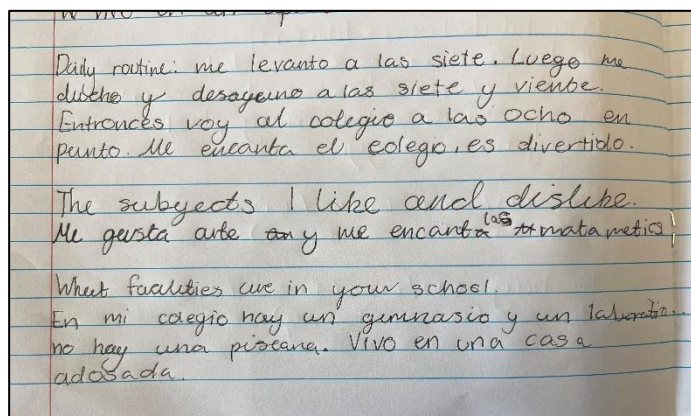 Daily routine: me levanto a las siete. Luego me
ducho y desayeuno a las siete y viente.
Entronces voy al colegio a las ocho en
punto. Me encanta el colegio, es divertido.
The subyects I like and dislike.
Me gusta arte y me encanta las matametics
What facilities are in your school.
En mi colegio hay un gimnasio y un laboratio.
no hay una pisceana. Vivo en una casa
adosada.